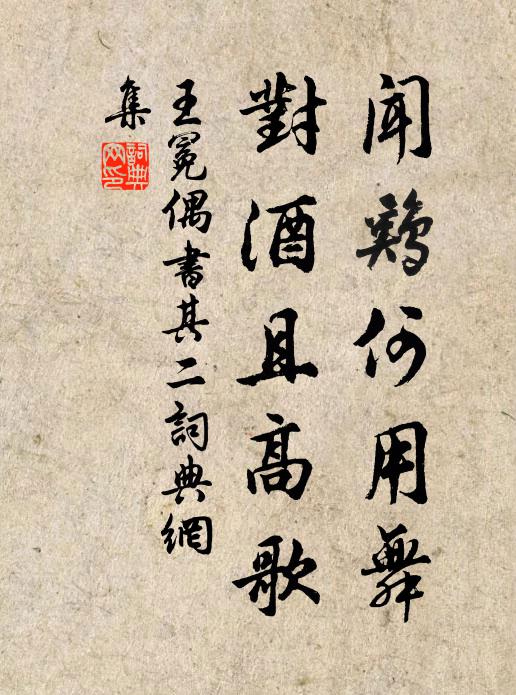 聞鷄何用舞
對酒且高歌
王冕偶書其二詞典網
集
詞典
网印